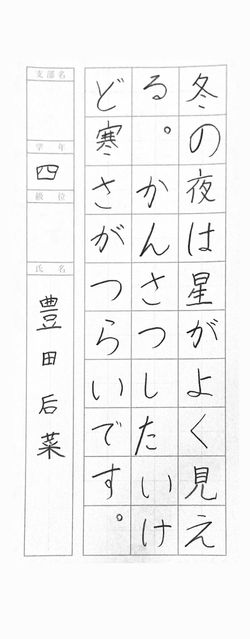 冬の夜は星がよく見え
る。かんさつしたいけ
ど寒さがつらいです。
支部名
学年
四
級位
氏名
豊田后菜